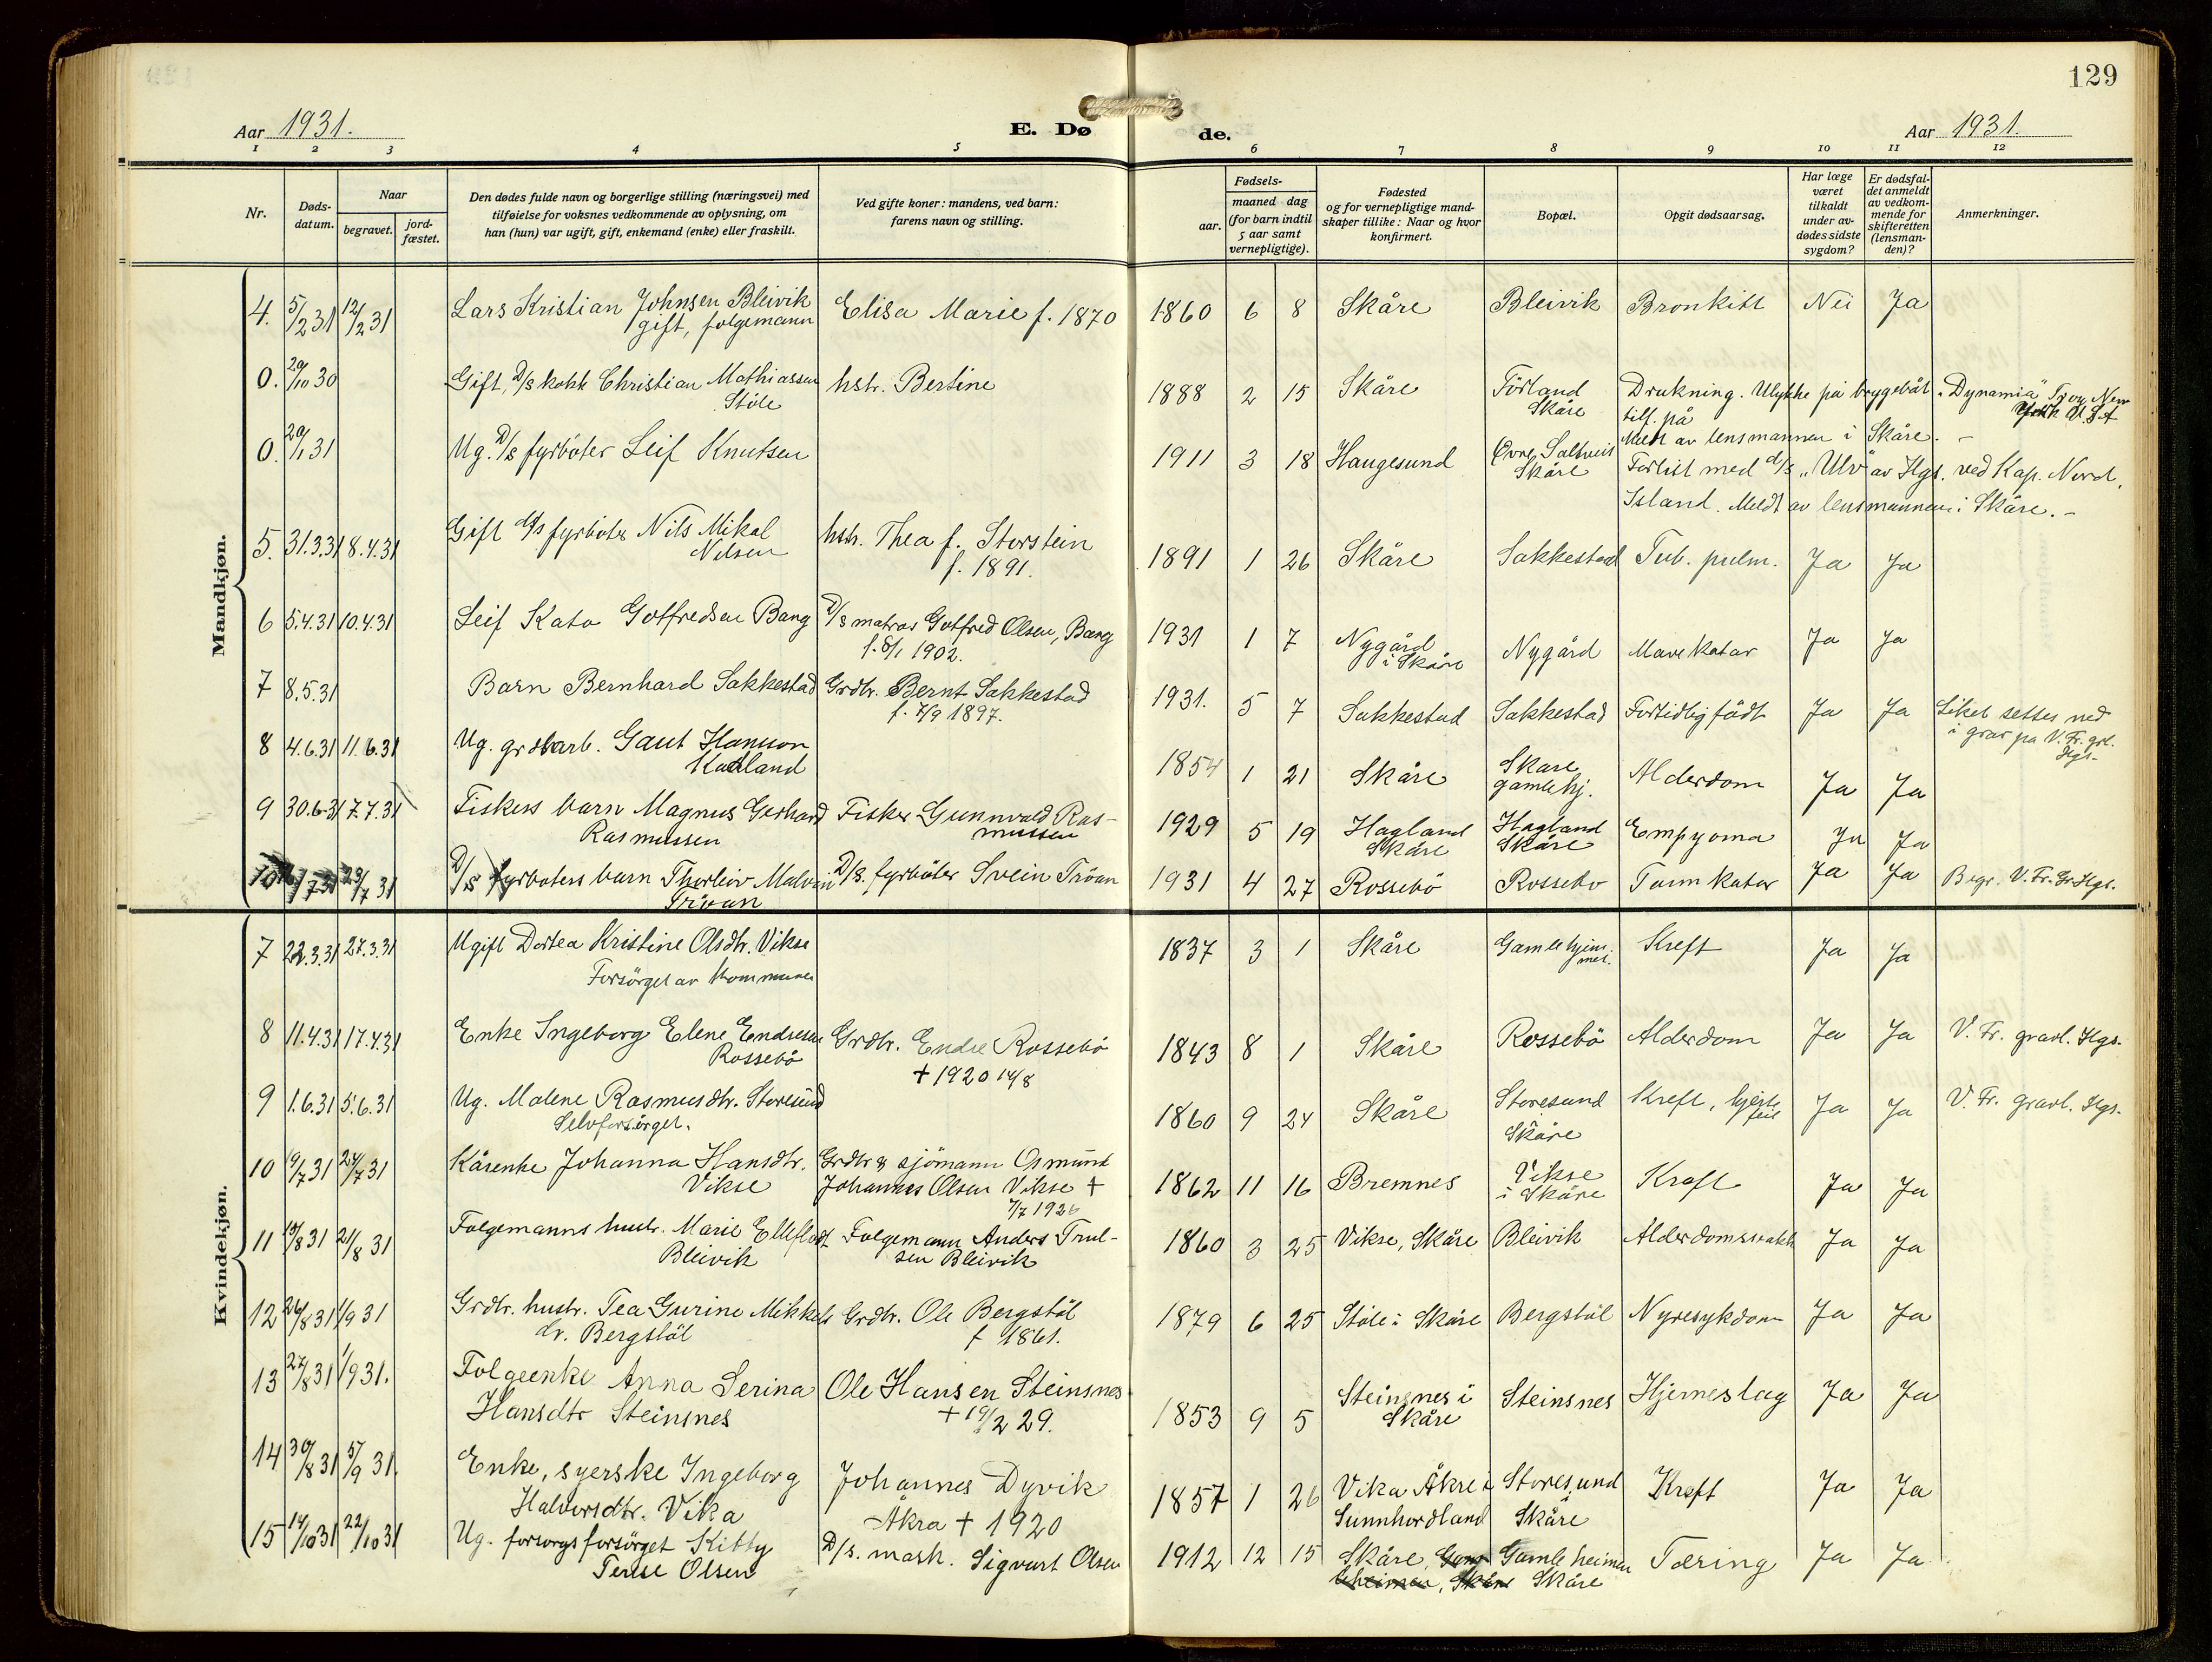 129
Aar 1931.
E. Dø
de.
Aar 1931.
1 2 3 4 5 6 7 8 9 10 11 12
Nr.
Døds-
datum.
Naar
begravet.
jord-
fæstet.
Den dødes fulde navn og borgerlige stilling (næringsvei) med
tilføielse for voksnes vedkommende av oplysning, om
han (hun) var ugift, gift, enkemand (enke) eller fraskilt.
Ved gifte koner: mandens, ved barn:
farens navn og stilling.
Fødsels-
aar.
maaned dag
(for barn indtil
5 aar samt
vernepligtige).
Fødested
og for vernepligtige mand-
skaper tillike: Naar og hvor
konfirmert.
Bopæl.
Opgit dødsaarsag.
Har læge
været
tilkaldt
under av-
dødes sidste
sygdom?
Er dødsfal-
det anmeldt
av vedkom-
mende for
skifteretten
(lensman-
den)?
Anmerkninger.
Mandkjøn.
4. 5/2 31 12/2 31 Lars Kristian Johnsen Bleivik Elisa Marie f. 1870 1860 6 8 Skåre Bleivik Bronkitt Nei Ja
gift, folgemann
0. 29/10 30 Gift, D/s kokk Christian Mathiassen hstr. Bertine 1888 2 15 Skåre Förland Drukning. Ulykke på bryggebåt "Dynamia" Troy New
Stöle Skåre tilf. på York U.S.A
Meldt av lensmannen i Skåre. -
0. 29/1 31 Ug. D/s fyrböter Leif Knutsen 1911 3 18 Haugesund Övre Saltveit Forlist med d/s "Ulv" av Hgs. ved Kap. Nord,
Skåre Island. Meldt av lensmannen i Skåre. -
5. 31.3.31 8.4.31 Gift d/s fyrböter Nils Mikal hstr. Thea f. Storstein 1891 1 26 Skåre Sakkestad Tub. pulm. Ja Ja
Nilsen f. 1891.
6 5.4.31 10.4.31 Leif Kato Gotfredsen Bang D/s matros Gotfred Olsen, Bang 1931 1 7 Nygård Nygård Mavekatar Ja Ja
f. 8/1 1902. i Skåre
7 8.5.31 Barn Bernhard Sakkestad Grdbr. Bernt Sakkestad 1931. 5 7 Sakkestad Sakkestad Fortidlig födt Ja Ja Liket settes ned
f. 7/9 1897. i grav på V. Fr. grl.
Hgs.
8 4.6.31 11.6.31 Ug. grdbarb. Gaut Hansson 1854 1 21 Skåre Skåre Alderdom Ja Ja
Kadland gamlehj.
9 30.6.31 7.7.31 Fiskers barn Magnus Gerhard Fisker Gunnvald Ras- 1929 5 19 Hagland Hagland Empyoma Ja Ja
Rasmussen mussen Skåre Skåre
10 23/7 31 D/s fyrböters barn Thorleiv Malvin D/s. fyrböter Svein Tröan 1931 4 27 Rossebö Rossebö Tarmkatar Ja Ja Begr. V. Fr. Gr. Hgs.
Tröan
Kvindekjøn.
7 22.3.31 27.3.31 Ugift Dortea Kristine Olsdtr. Vikse 1837 3 1 Skåre Gamlehjem- Kreft Ja Ja
Forsörget av kommunen met.
8 11.4.31 17.4.31 Enke Ingeborg Elene Endresen Grdbr. Endre Rossebö 1843 8 1 Skåre Rossebö Alderdom Ja Ja V. Fr. gravl. Hgs.
Rossebö + 1920 14/8
9 1.6.31 5.6.31 Ug. Malene Rasmusdtr. Storesund 1860 9 24 Skåre Storesund Kreft, hjerte- Ja Ja V. Fr. gravl. Hgs.
Selvforsörget. Skåre feil
10 19/7 31 24/7 31 Kårenke Johanna Hansdtr. Grdbr & sjömann Osmund 1862 11 16 Bremnes Vikse Kreft Ja Ja
Vikse Johannes Olsen Vikse + i Skåre
7/7 1926
11 19/8 31 21/8 31 Folgemanns hustr. Marie Folgemann Anders Trul- 1860 3 25 Vikse, Skåre Bleivik Alderdomssvakh Ja Ja
Bleivik sen Bleivik
12 26/8 31 1/9 31 Grdbr. hustr. Tea Gurine Mikkels Grdbr. Ole Bergstöl 1879 6 25 Stöle i Skåre Bergstöl Nyresykdom Ja Ja
dr. Bergstöl f 1861.
13 27/8 31 1/9 31. Folgeenke Anna Serina Ole Hansen Steinsnes 1853 9 5 Steinsnes i Steinsnes Hjerneslag Ja Ja
Hansdtr Steinsnes + 19/2 29. Skåre
14 30/8 31 5/9 31. Enke, syerske Ingeborg Johannes Dyvik 1857 1 26 Vika Åkre i Storesund Kreft Ja Ja
Halvorsdtr. Vika Åkra + 1920 Sunnhordland Skåre
15 14/10 31 22/10 31 Ug. forsorgsforsörget Kitty D/s. mask. Sigvart Olsen 1912 12 15 Skåre Gamleheimen Tæring Ja Ja
Terese Olsen Skåre